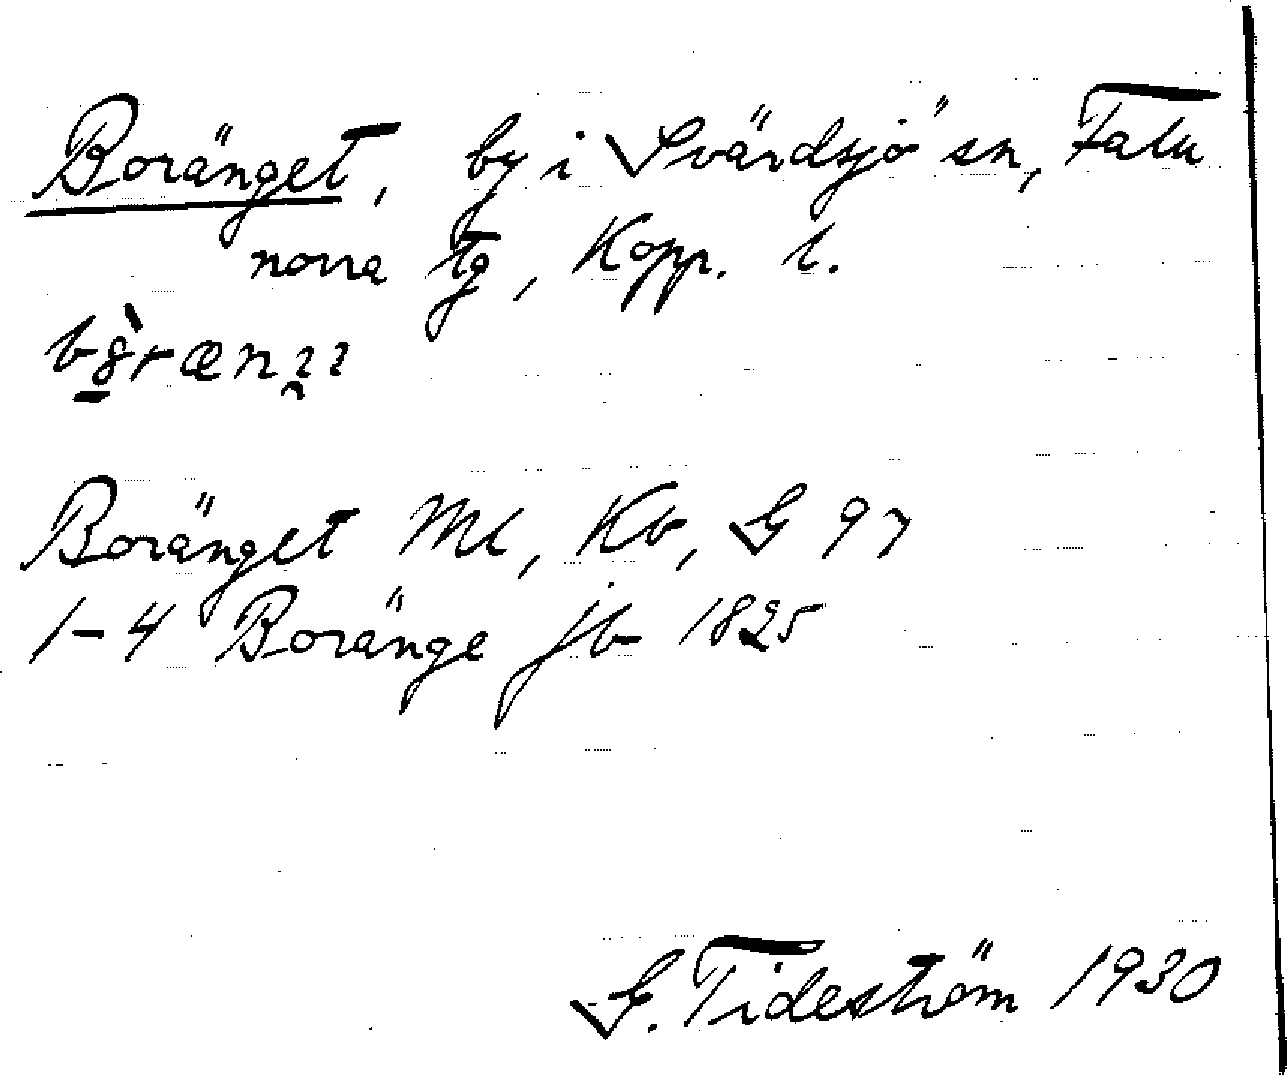 Boränget, by i Svärdsjö sn, Falu
norra tg, Kopp. l.
Boränget Ml, Kb, G 97
1-4 Boränge jb 1825
G. Tideström 1930